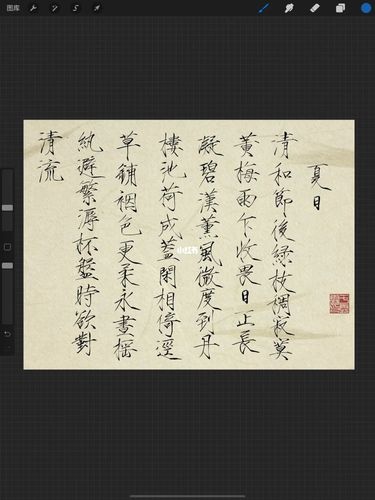 图库
夏日
清和節後綠枝稠寂莫
黃梅雨乍收畏日正長
凝碧漢薰風微度到丹
樓池荷成蓋閑相倚逕
草鋪裀色更柔永晝搖
紈避繁溽杯盤時欲對
清流
小红书